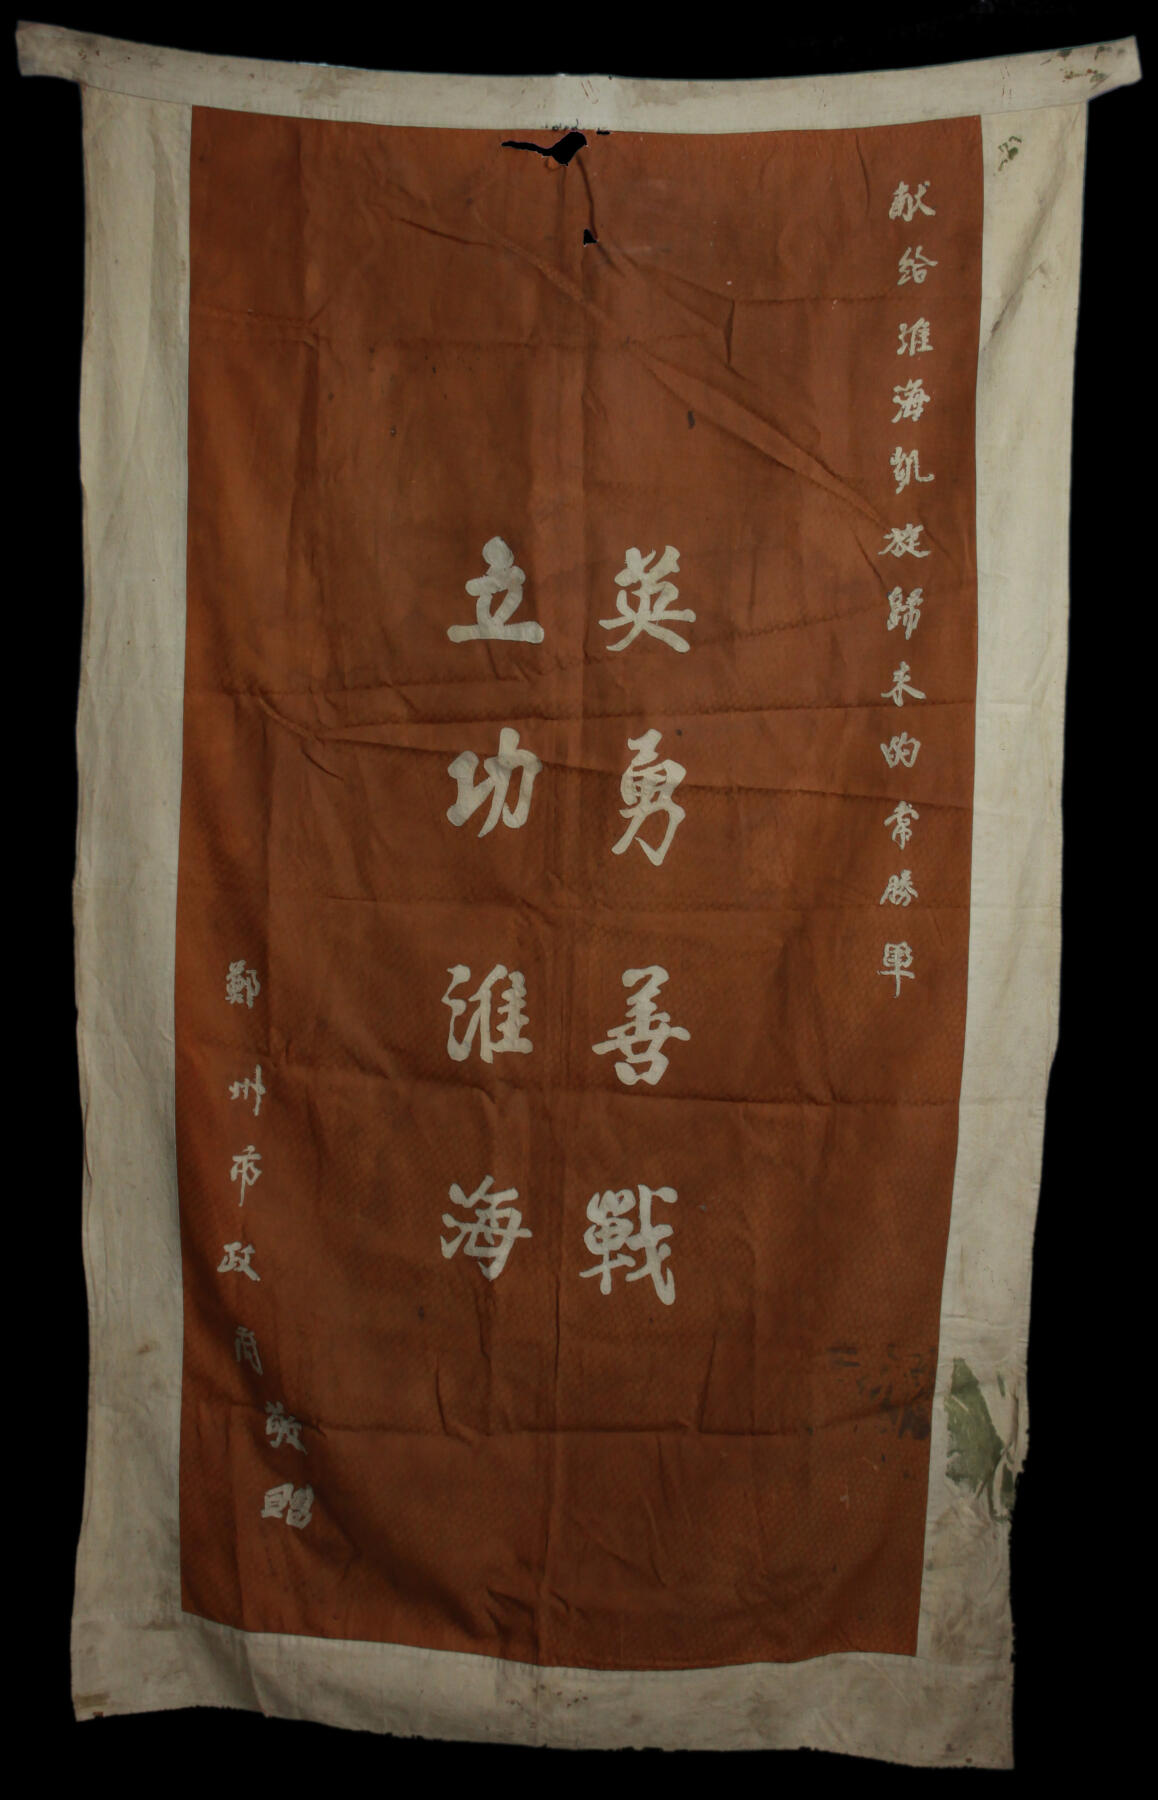 献給淮海凱旋歸来的常勝軍
英勇善戰
立功淮海
鄭州市政府敬贈